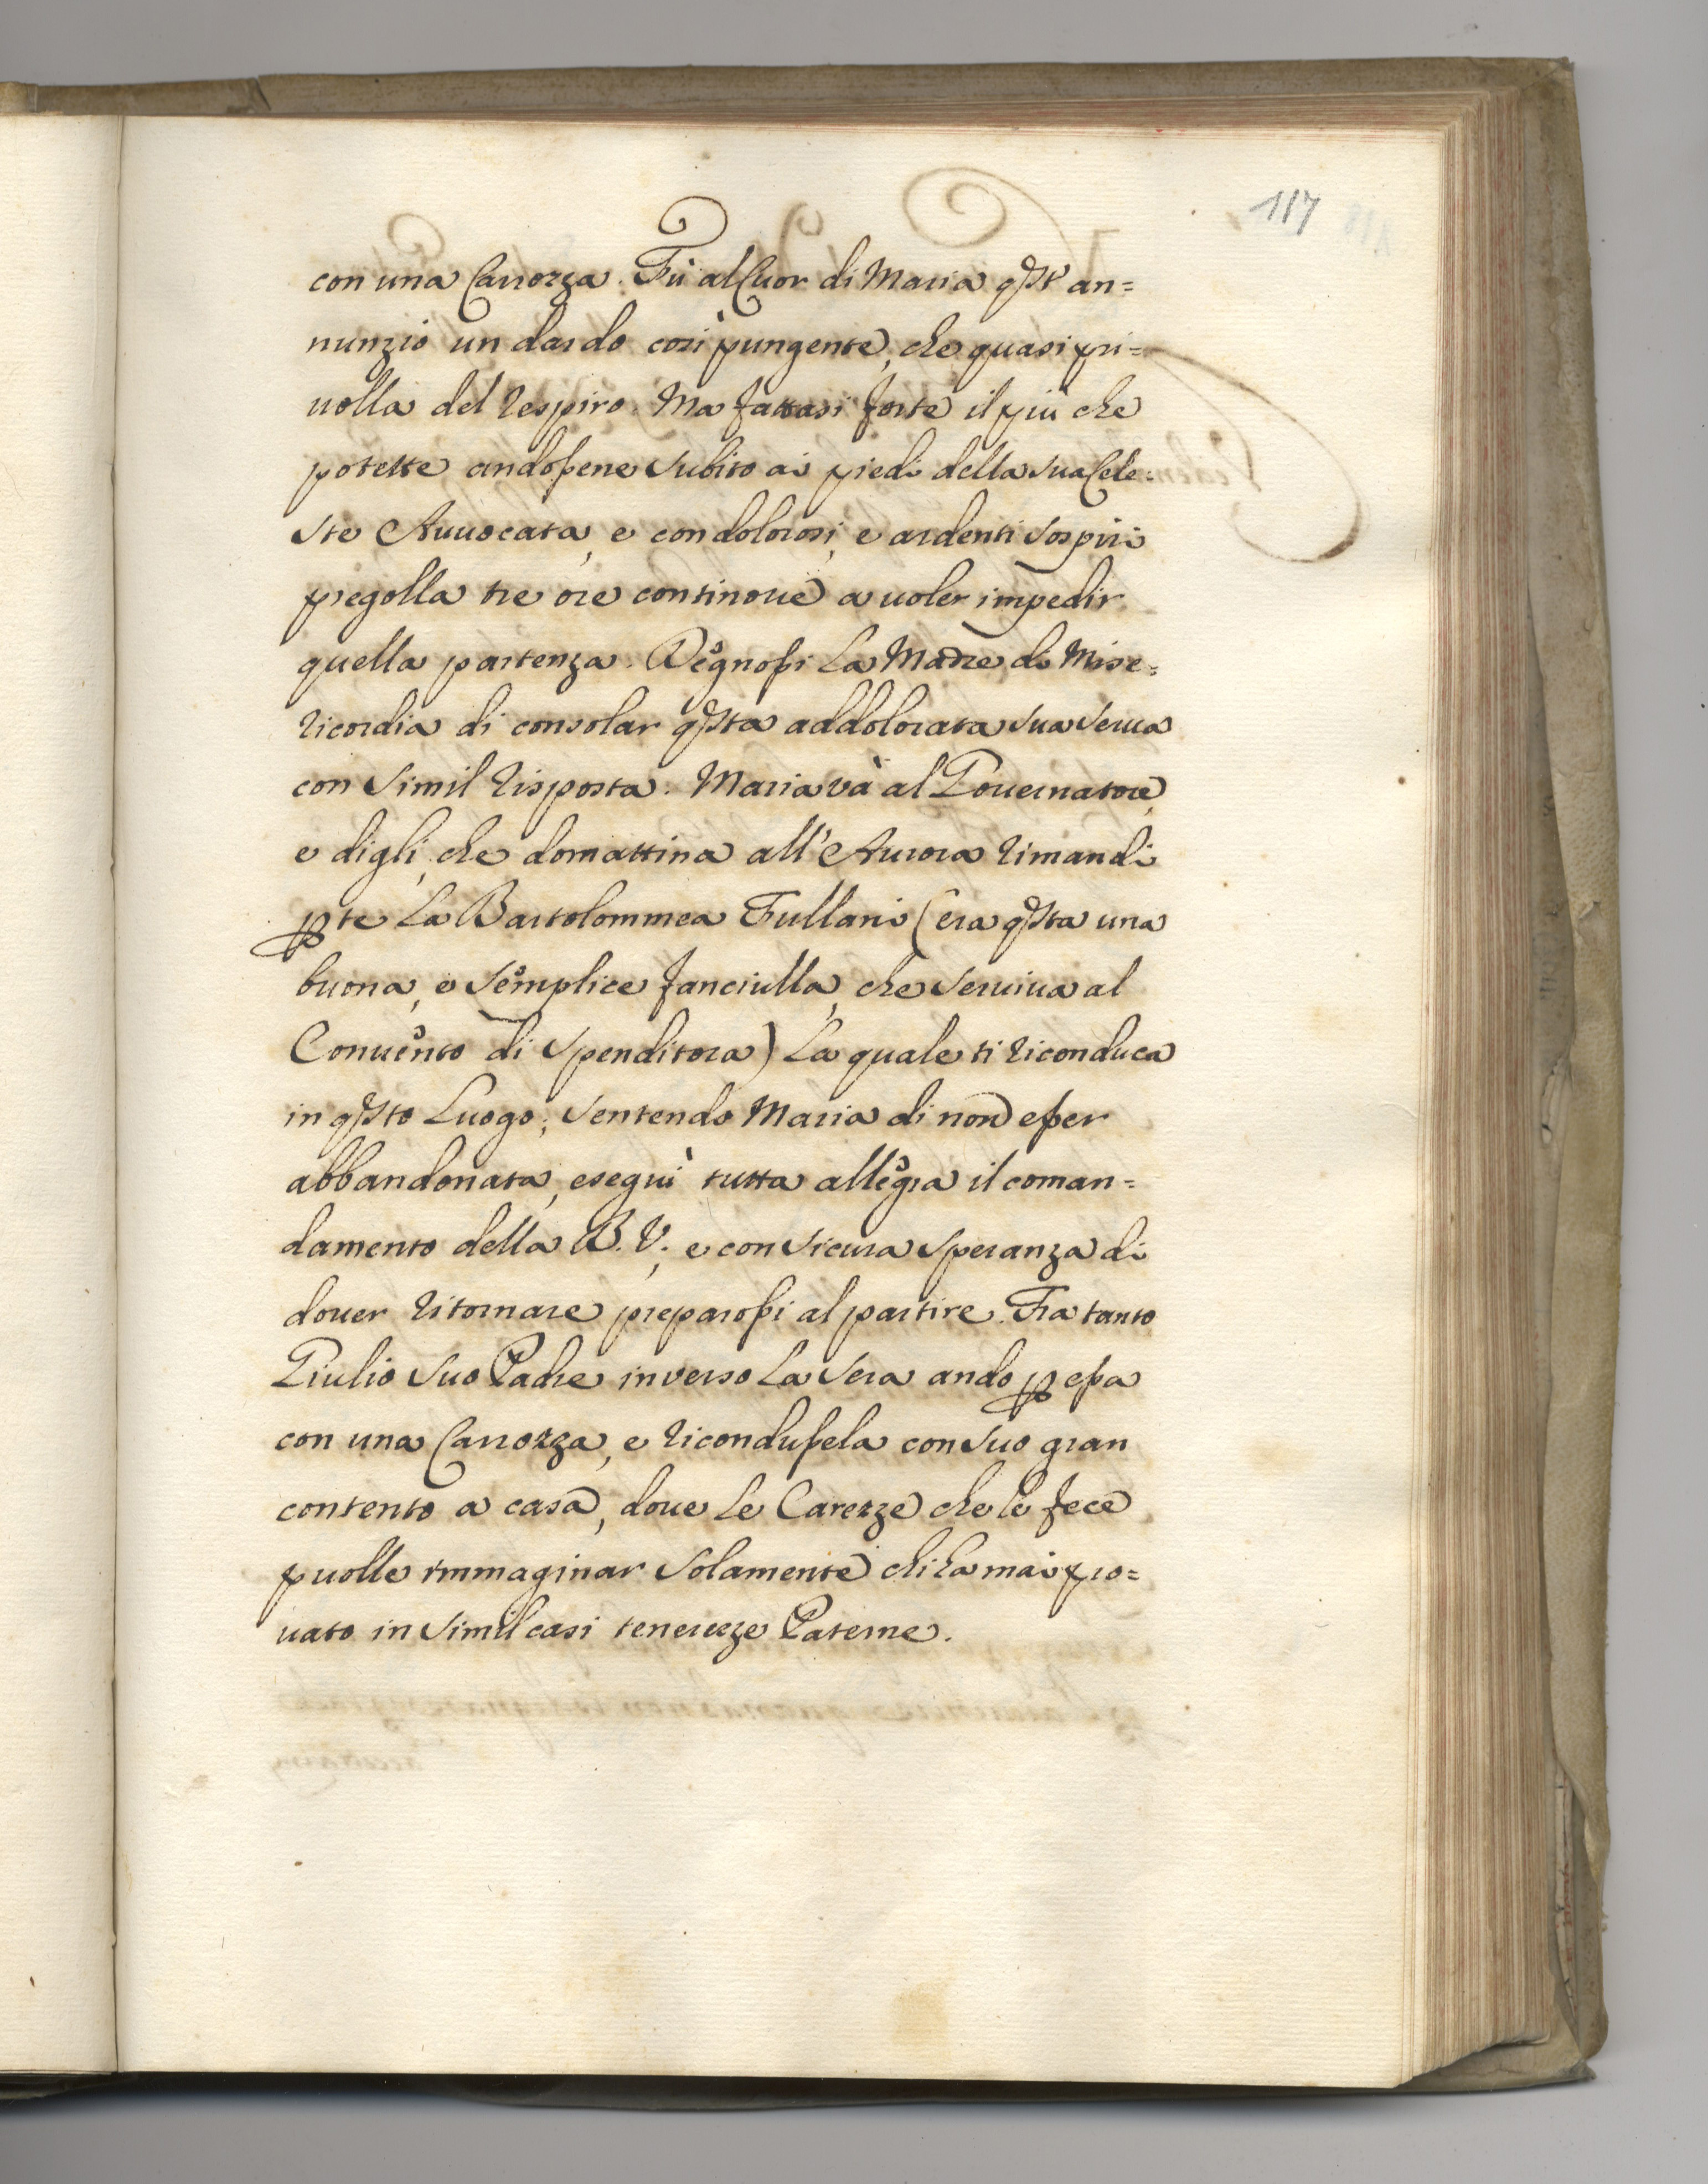 117
con una Carrozza. Fù al Cuor di Maria qst' an=
nunzio un dardo così pungente, che quasi pri=
uolla del respiro. Ma fattasi forte il più che
potette andossene subito ai piedi della sua Cele=
ste Auuocata, e con dolorosi, e ardenti sospiri
pregolla tre ore continoue a uoler impedir
quella partenza. Degnossi La Madre di Mise=
ricordia di consolar qsta addolorata sua serua
con simil risposta. Maria và al Gouernatore,
e digli, che domattina all'Aurora rimandi
p te La Bartolommea Fullani (era qsta una
buona, e semplice fanciulla, che seruiua al
Conuento di spenditora) La quale ti riconduca
in qsto Luogo; sentendo Maria di non esser
abbandonata, eseguì tutta allegra il coman=
damento della B. V., e con sicura speranza di
douer ritornare preparossi al partire. Fra tanto
Giulio suo Padre inverso La sera ando p essa
con una Carrozza, e ricondussela con suo gran
contento a casa, doue Le Carezze che le fece
puolle immaginar solamente chi ha mai pro=
uato in simil casi tenerezze Paterne.